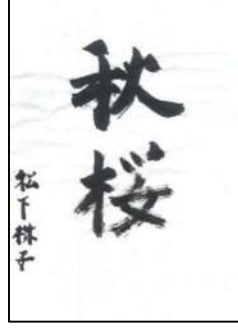 秋桜
松下祥子